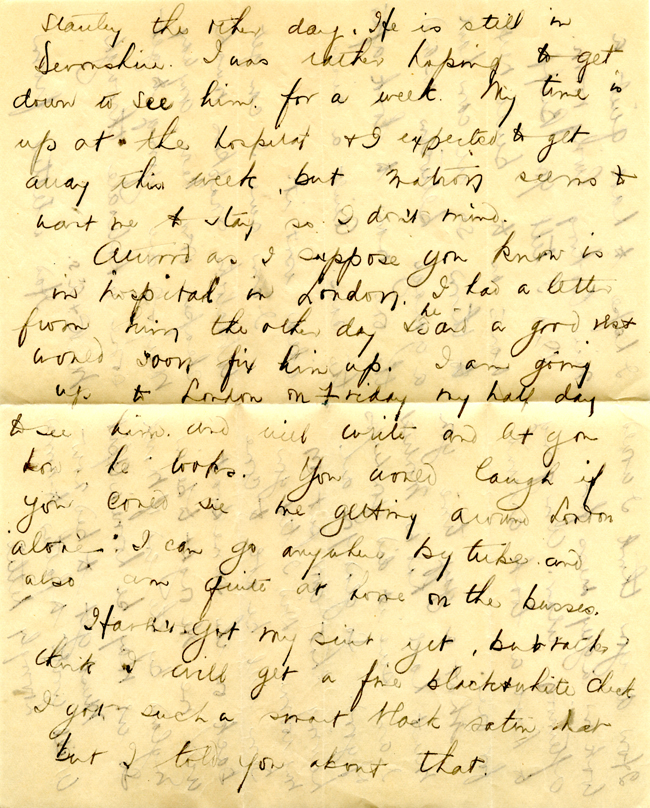 Stanley the other day. He is still in
Devonshire. I was rather hoping to get
down to see him for a week. My time is
up at the hospital & I expected to get
away this week, but Matron seems to
want me to stay so I don't mind.
as I suppose you know is
in hospital in London. I had a letter
from him the other day he said a good rest
would soon fix him up. I am going
up to London on Friday my half day
to see him and will write and let you
know he looks. You would laugh if
you could see me getting around London
alone. I can go anywhere by tube and
also am quite at home on the busses.
Haven't got my suit yet, but rather
think I will get a fine black & white check
I got such a smart black satin hat
but I told you about that.